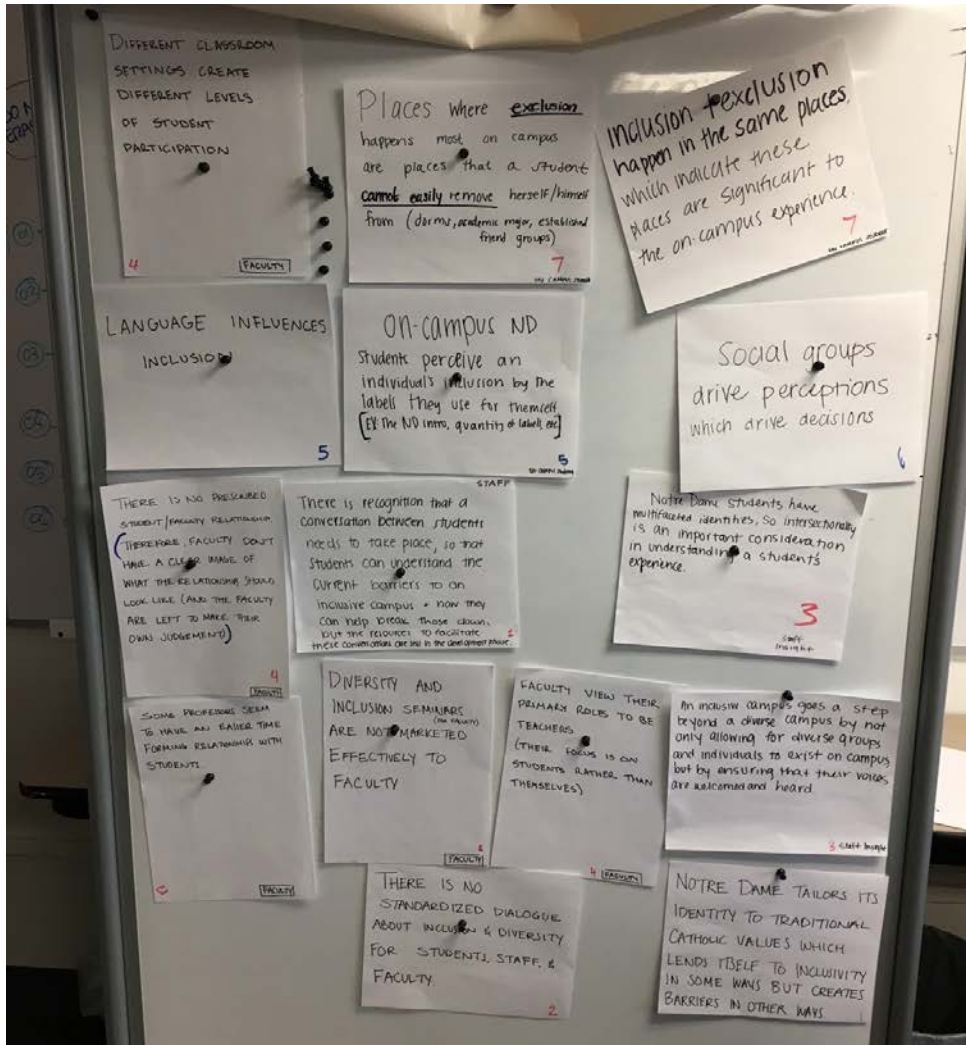 DIFFERENT CLASSROOM
SETTINGS CREATE
DIFFERENT LEVELS
OF STUDENT
PARTICIPATION
4
FACULTY
Places where exclusion
happens most on campus
are places that a student
cannot easily remove herself/himself
from (dorms, academic major, established
friend groups)
7
Inclusion + exclusion
happen in the same places,
which indicate these
places are significant to
the on-campus experience.
7
LANGUAGE INFLUENCES
INCLUSION
5
On-campus ND
Students perceive an
individual's inclusion by the
labels they use for themself
[EX: The ND intro, quantity of labels, etc]
5
Social groups
drive perceptions
which drive decisions
6
THERE IS NO PRESCRIBED
STUDENT/FACULTY RELATIONSHIP
(THEREFORE, FACULTY DON'T
HAVE A CLEAR IMAGE OF
WHAT THE RELATIONSHIP SHOULD
LOOK LIKE (AND THE FACULTY
ARE LEFT TO MAKE THEIR
OWN JUDGEMENT)
4
FACULTY
STAFF
There is recognition that a
conversation between students
needs to take place, so that
students can understand the
current barriers to an
inclusive campus + how they
can help break those down,
but the resources to facilitate
these conversations are still in the development phase.
2
Notre Dame students have
multifaceted identities, so intersectionality
is an important consideration
in understanding a student's
experience.
3
Staff
Insight
SOME PROFESSORS SEEM
TO HAVE AN EASIER TIME
FORMING RELATIONSHIPS WITH
STUDENTS
FACULTY
DIVERSITY AND
INCLUSION SEMINARS
(FOR FACULTY)
ARE NOT MARKETED
EFFECTIVELY TO
FACULTY
2
FACULTY
FACULTY VIEW THEIR
PRIMARY ROLES TO BE
TEACHERS
(THEIR FOCUS IS ON
STUDENTS RATHER THAN
THEMSELVES)
4
FACULTY
An inclusive campus goes a step
beyond a diverse campus by not
only allowing for diverse groups
and individuals to exist on campus
but by ensuring that their voices
are welcomed and heard
3 Staff Insight
THERE IS NO
STANDARDIZED DIALOGUE
ABOUT INCLUSION & DIVERSITY
FOR STUDENTS, STAFF, &
FACULTY.
2
NOTRE DAME TAILORS ITS
IDENTITY TO TRADITIONAL
CATHOLIC VALUES WHICH
LENDS ITSELF TO INCLUSIVITY
IN SOME WAYS BUT CREATES
BARRIERS IN OTHER WAYS
1